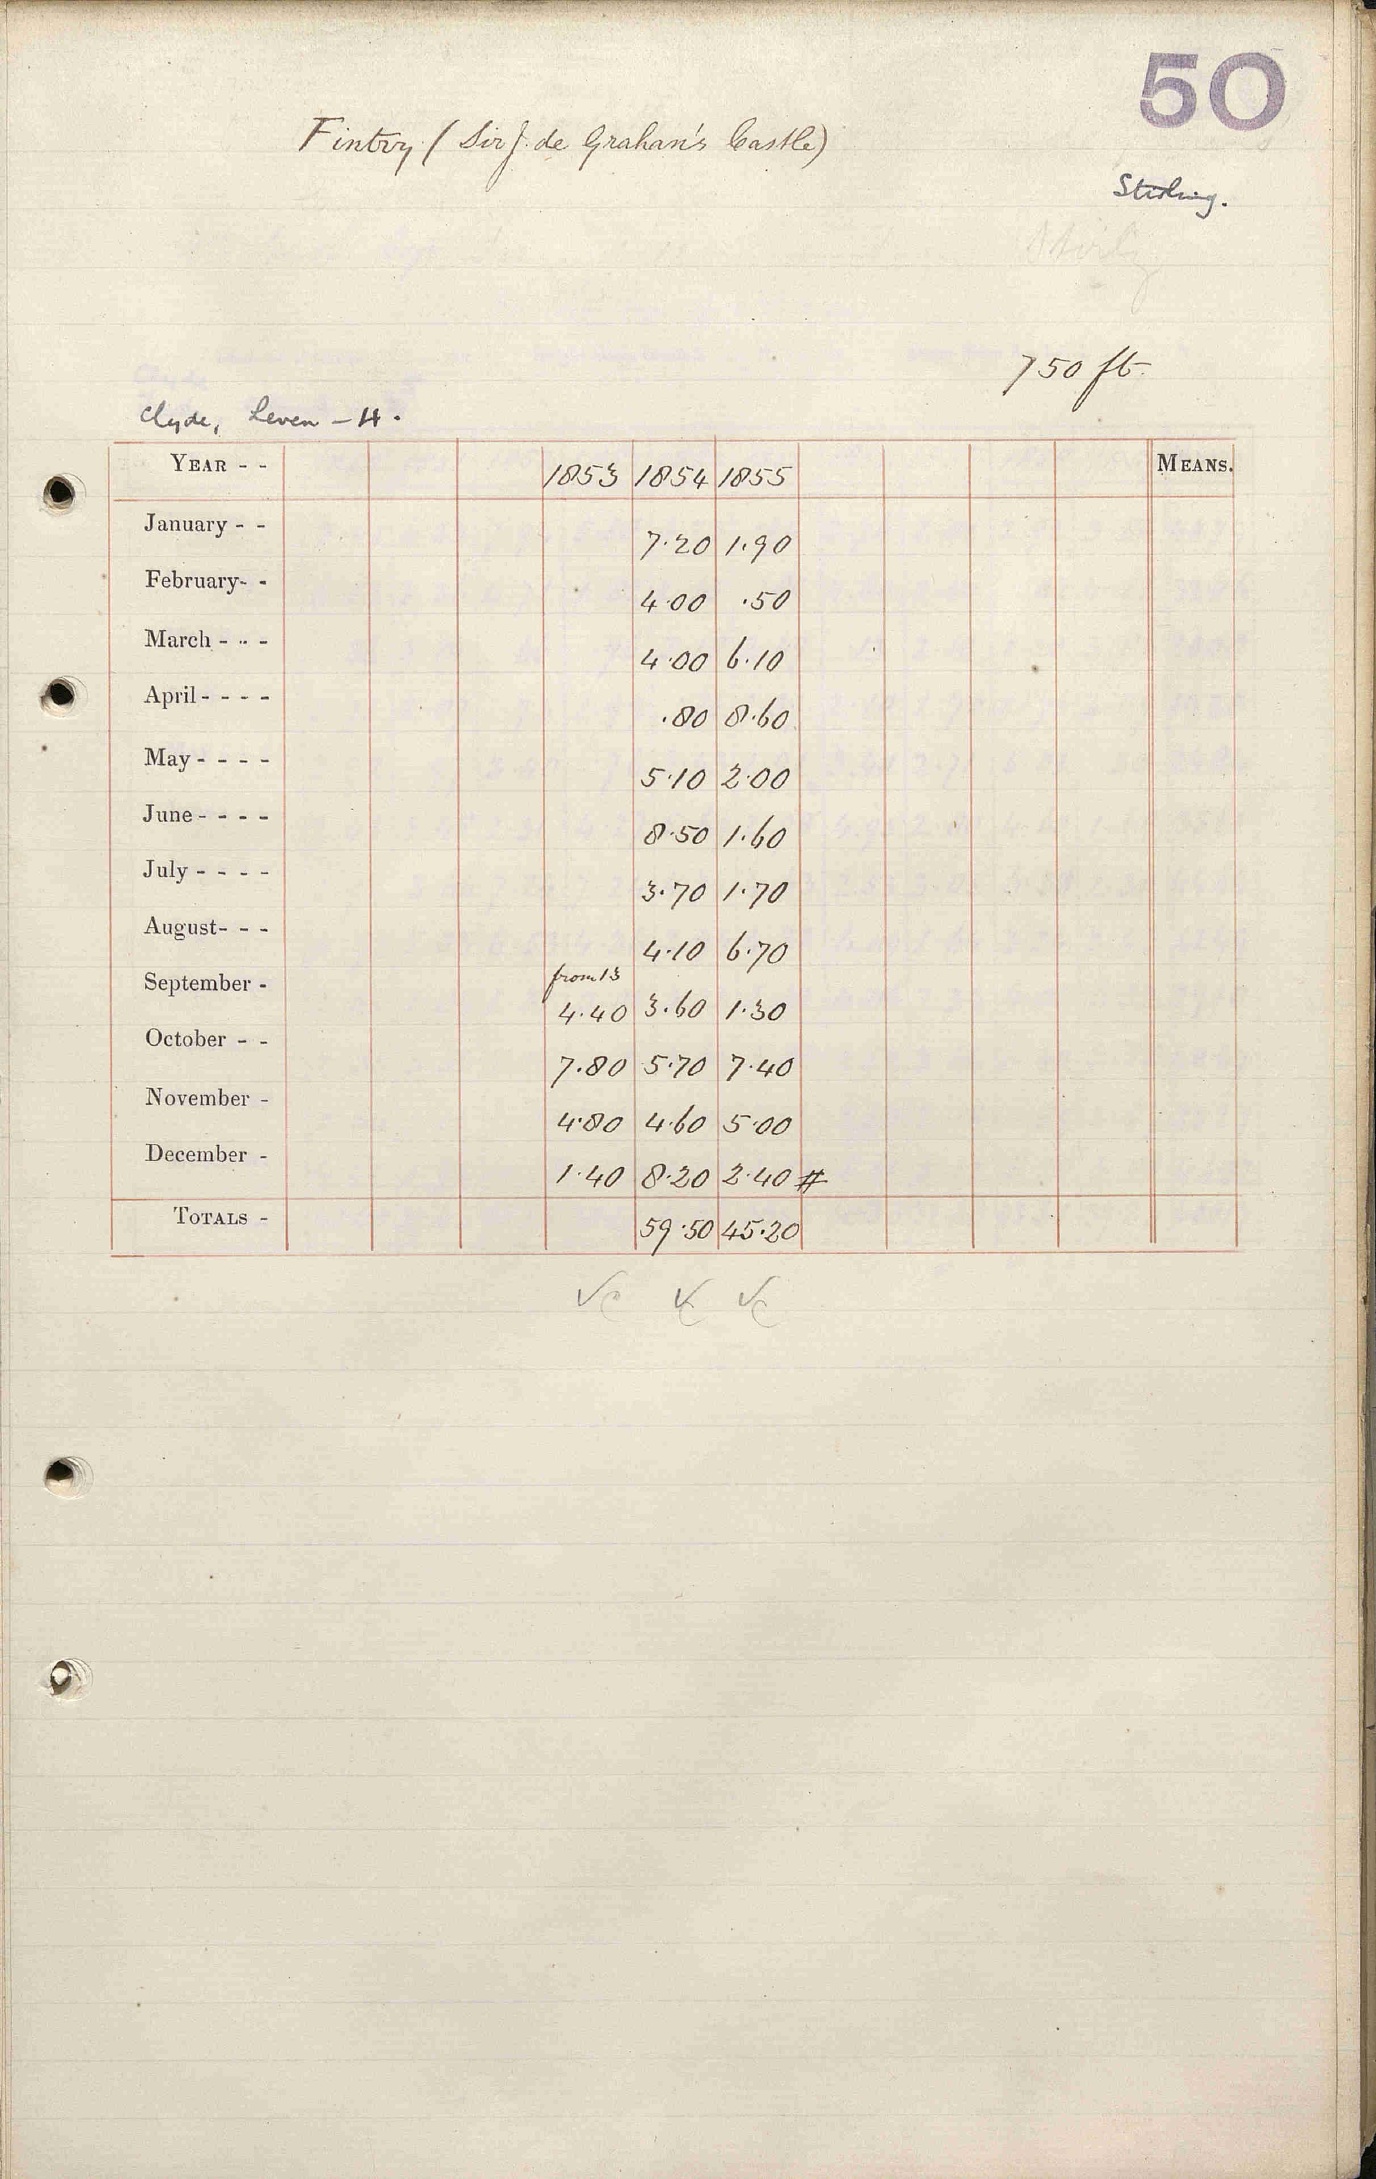 50
Fintry (Sir J. de Graham's Castle)
Stirling.
750 ft.
Clyde, Leven - H.
YEAR - - 1853 1854 1855 MEANS.
January - - 7.20 1.90
February- - 4.00 .50
March - - - 4.00 6.10
April - - - - .80 8.60
May - - - - 5.10 2.00
June - - - - 8.50 1.60
July - - - - 3.70 1.70
August- - - 4.10 6.70
from 13
September - 4.40 3.60 1.30
October - - 7.80 5.70 7.40
November - 4.80 4.60 5.00
December - 1.40 8.20 2.40 #
TOTALS - 59.50 45.20